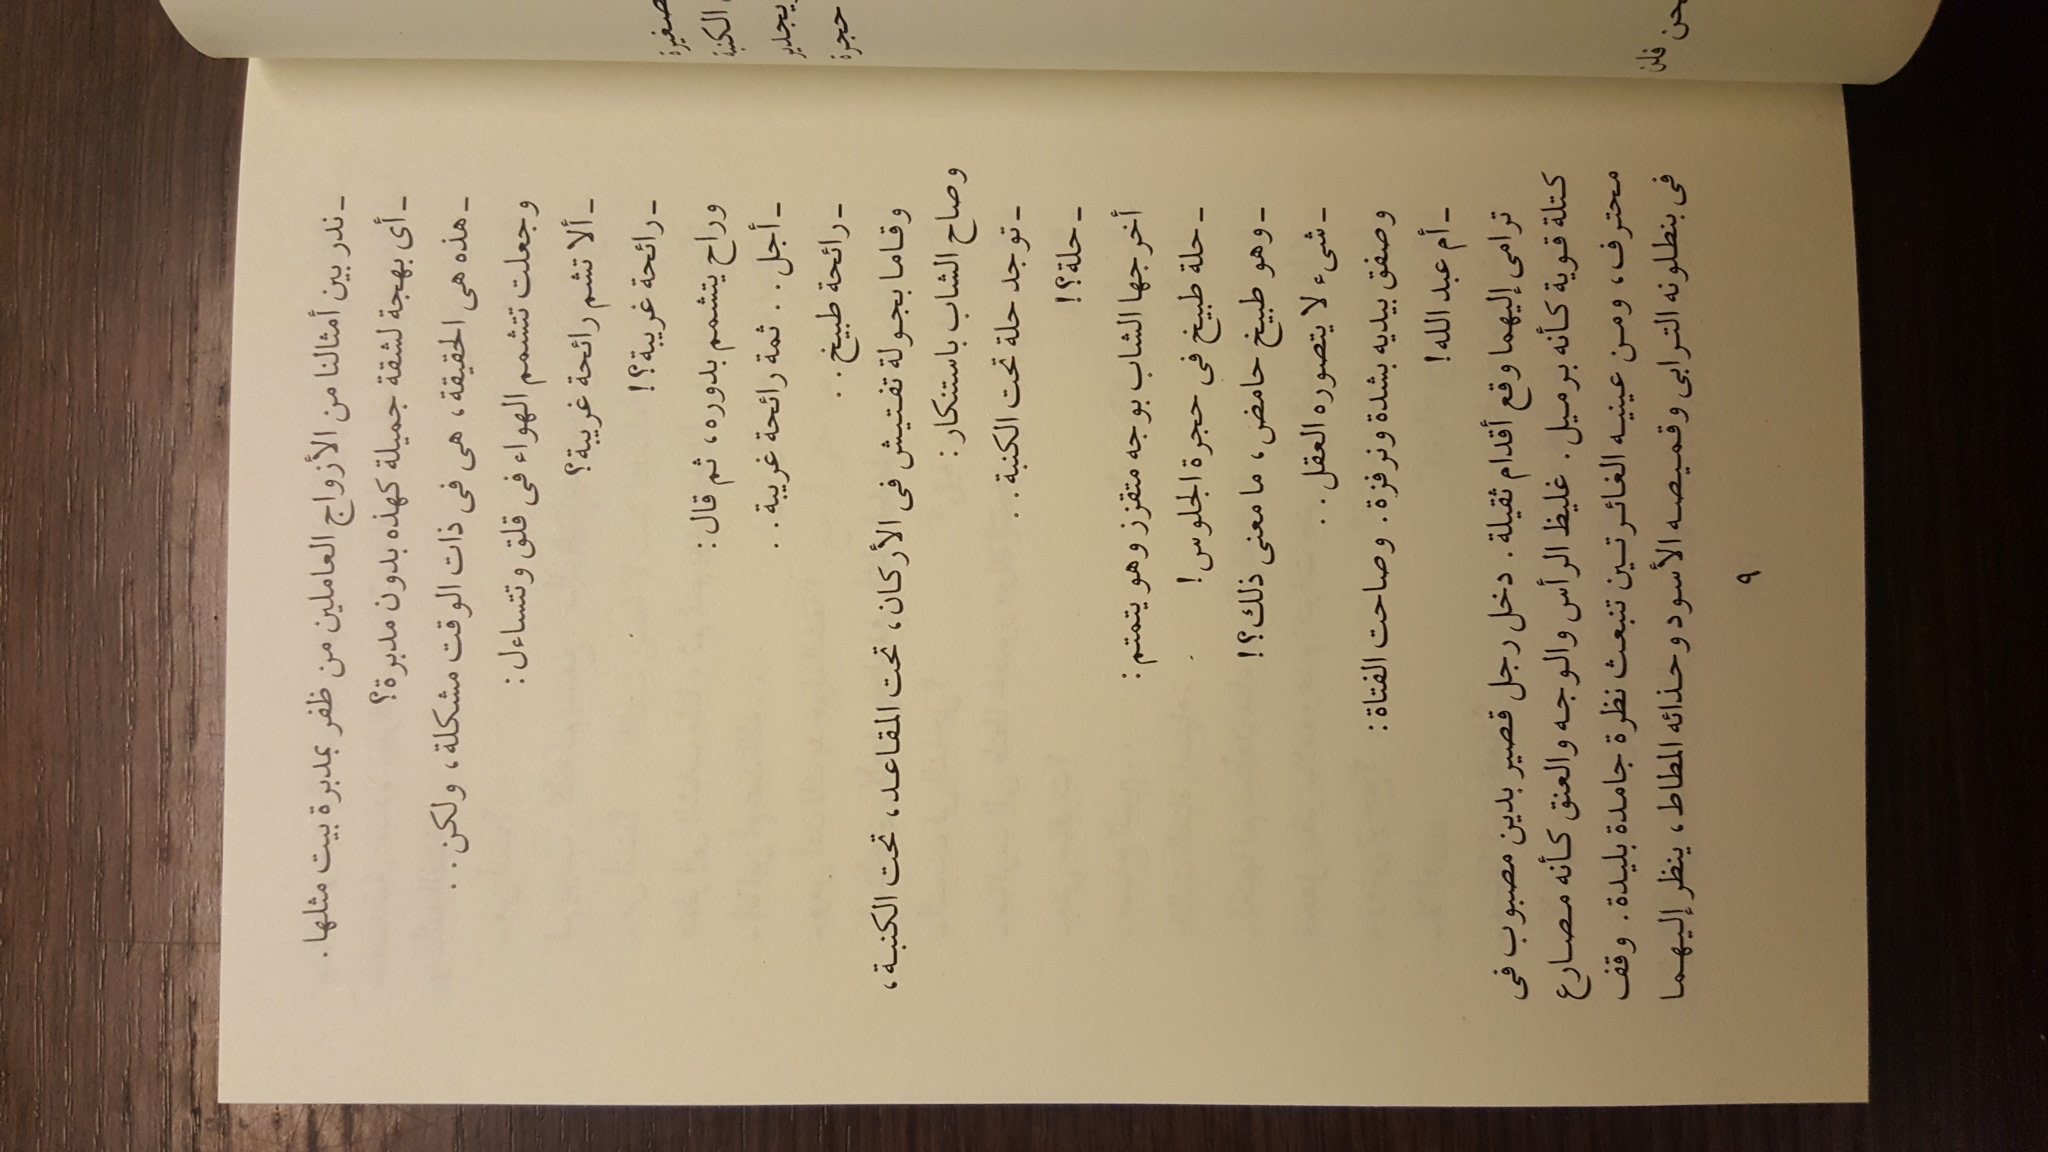 ـ ندر بين أمثالنا من الأزواج العاملين من ظفر بمدبرة بيت مثلها.
ـ أى بهجة لشقة جميلة كهذه بدون مدبرة؟
ـ هذه هى الحقيقة، هى فى ذات الوقت مشكلة، ولكن..
وجعلت تتشمم الهواء فى قلق وتتساءل:
ـ ألا تشم رائحة غريبة؟
ـ رائحة غريبة؟!
وراح يتشمم بدوره، ثم قال:
ـ أجل.. ثمة رائحة غريبة..
ـ رائحة طبيخ..
وقاما بجولة تفتيش فى الأركان، تحت المقاعد، تحت الكنبة،
وصاح الشاب باستنكار:
ـ توجد حلة تحت الكنبة..
ـ حلة؟!
أخرجها الشاب بوجه متقزز وهو يتمتم:
ـ حلة طبيخ فى حجرة الجلوس!
ـ وهو طبيخ حامض، ما معنى ذلك؟!
ـ شىء لا يتصوره العقل..
وصفق بيديه بشدة ونرفزة. وصاحت الفتاة:
ـ أم عبد الله!
ترامى إليهما وقع أقدام ثقيلة. دخل رجل قصير بدين مصبوب فى
كتلة قوية كأنه برميل. غليظ الرأس والوجه والعنق كأنه مصارع
محترف، ومن عينيه الغائرتين تنبعث نظرة جامدة بليدة. وقف
فى بنطلونه الترابى وقميصه الأسود وحذائه المطاط، ينظر إليهما
٩
صغيرة
الكنبة
حجرة